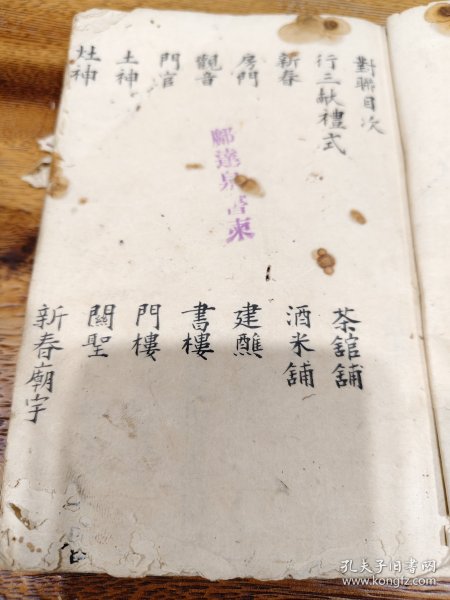 對聯目次
行三献禮式
新春
房門
觀音
門官
土神
灶神
茶舘舖
酒米舖
建醮
書樓
門樓
關聖
新春廟宇
孔夫子旧书网
www.kongfz.com